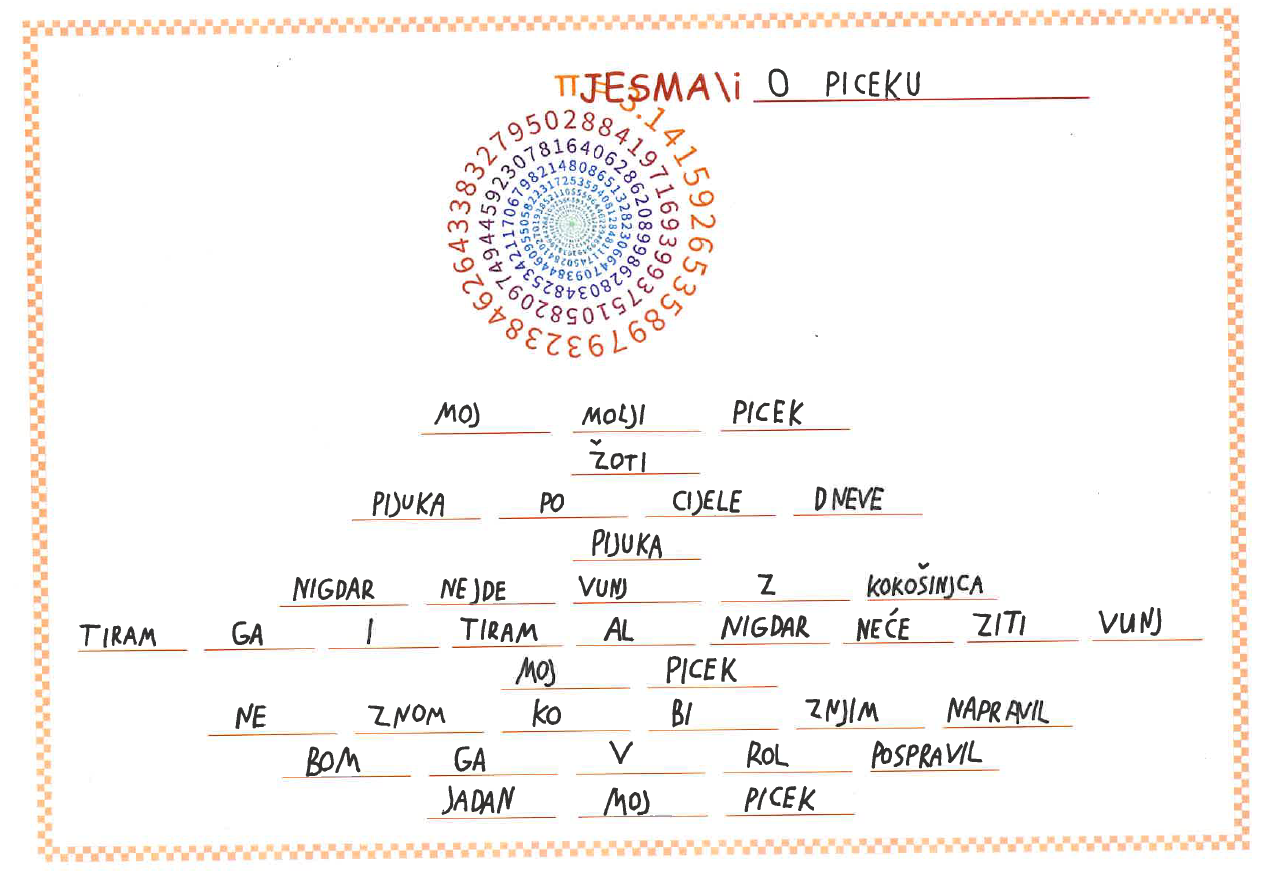 πJESMA\i O PICEKU
π = 3.14159265358979323846264338327950288419716939937510582097494459230781640628620899862803482534211706798214808651328230664709384460955058223172535940812848111745028410270193852110555964462
MOJ MOLJI PICEK
ŽOTI
PIJUKA PO CIJELE DNEVE
PIJUKA
NIGDAR NEJDE VUNJ Z KOKOŠINJCA
TIRAM GA I TIRAM AL NIGDAR NEĆE ZITI VUNJ
MOJ PICEK
NE ZNOM KO BI ZNJIM NAPRAVIL
BOM GA V ROL POSPRAVIL
JADAN MOJ PICEK